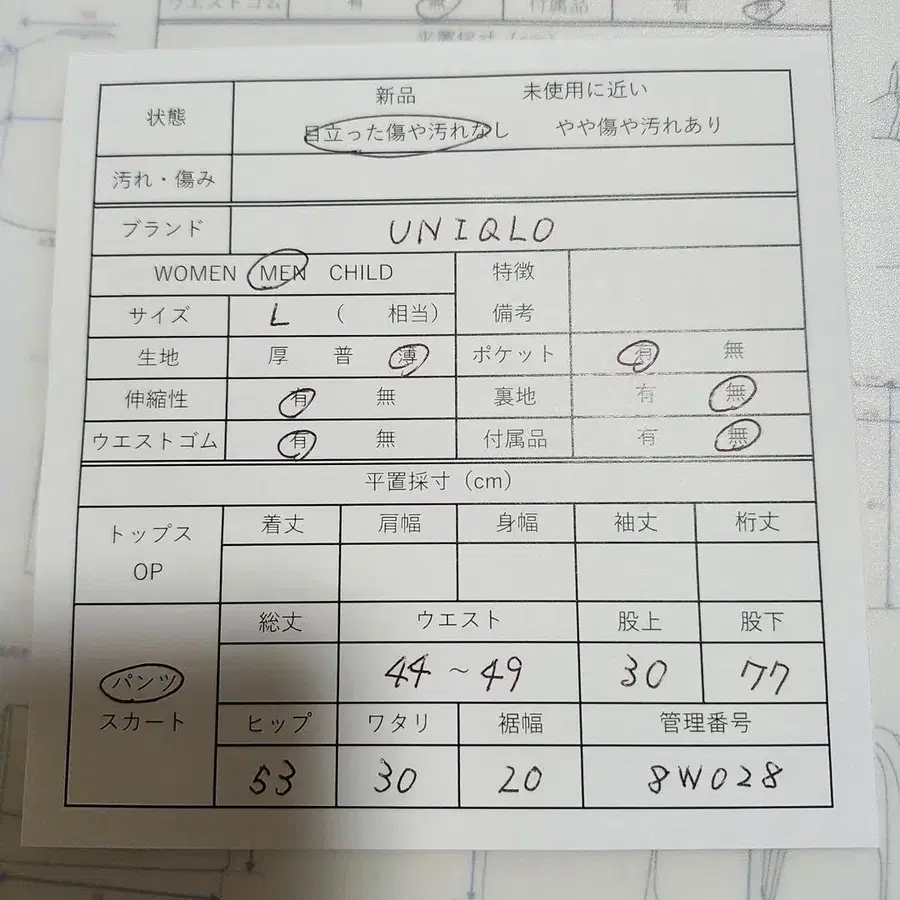 ウエストゴム 有 無 付属品 有 無
平置採寸（cm）
状態 新品 未使用に近い
目立った傷や汚れなし やや傷や汚れあり
汚れ・傷み
ブランド UNIQLO
WOMEN MEN CHILD 特徴
サイズ L （ 相当） 備考
生地 厚 普 薄 ポケット 有 無
伸縮性 有 無 裏地 有 無
ウエストゴム 有 無 付属品 有 無
平置採寸（cm）
トップス 着丈 肩幅 身幅 袖丈 裄丈
OP
総丈 ウエスト 股上 股下
パンツ 44～49 30 77
スカート ヒップ ワタリ 裾幅 管理番号
53 30 20 8W028